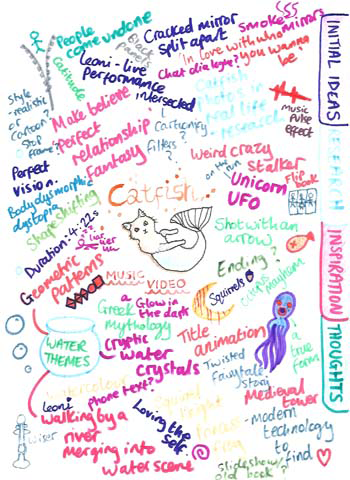 People
come undone
Black
Cracked mirror
split apart
Smoke mirrors
Leoni - live
performance
'In love with who
you wanna
be'
Chat dialogue?
catitude
Style
- realistic
or
Cartoon?
Stop
frame?
Make believe
perfect
relationship
fantasy
intersected
Cartoonify
filters
?
Catfish
Photos in
real life
research
Music
Pulse
effect
Perfect
vision.
Body dysmorphic
dystopia
Shapeshifting
Weird crazy
stalker
on the run
Unicorn
UFO
Flip
book
Catfish
Duration: 4.22s
liar
lier
un
Shot with an
arrow
Geometric
patterns
MUSIC
VIDEO
Ending?
Squirrels
a
Greek
mythology
Glow in
the dark
Cryptic
water
crystals
Title
animation
a
true
form
WATER
THEMES
Twisted
Fairytale
story
Watercolour
phone text?
Squirrel
Leoni
walking by a
river
merging into
water scene
Loving the
self
Medieval
tower
- modern
technology
to
find
Princess
frog
wiser
slideshow/
old book?
INITIAL IDEAS
RESEARCH
INSPIRATION
THOUGHTS